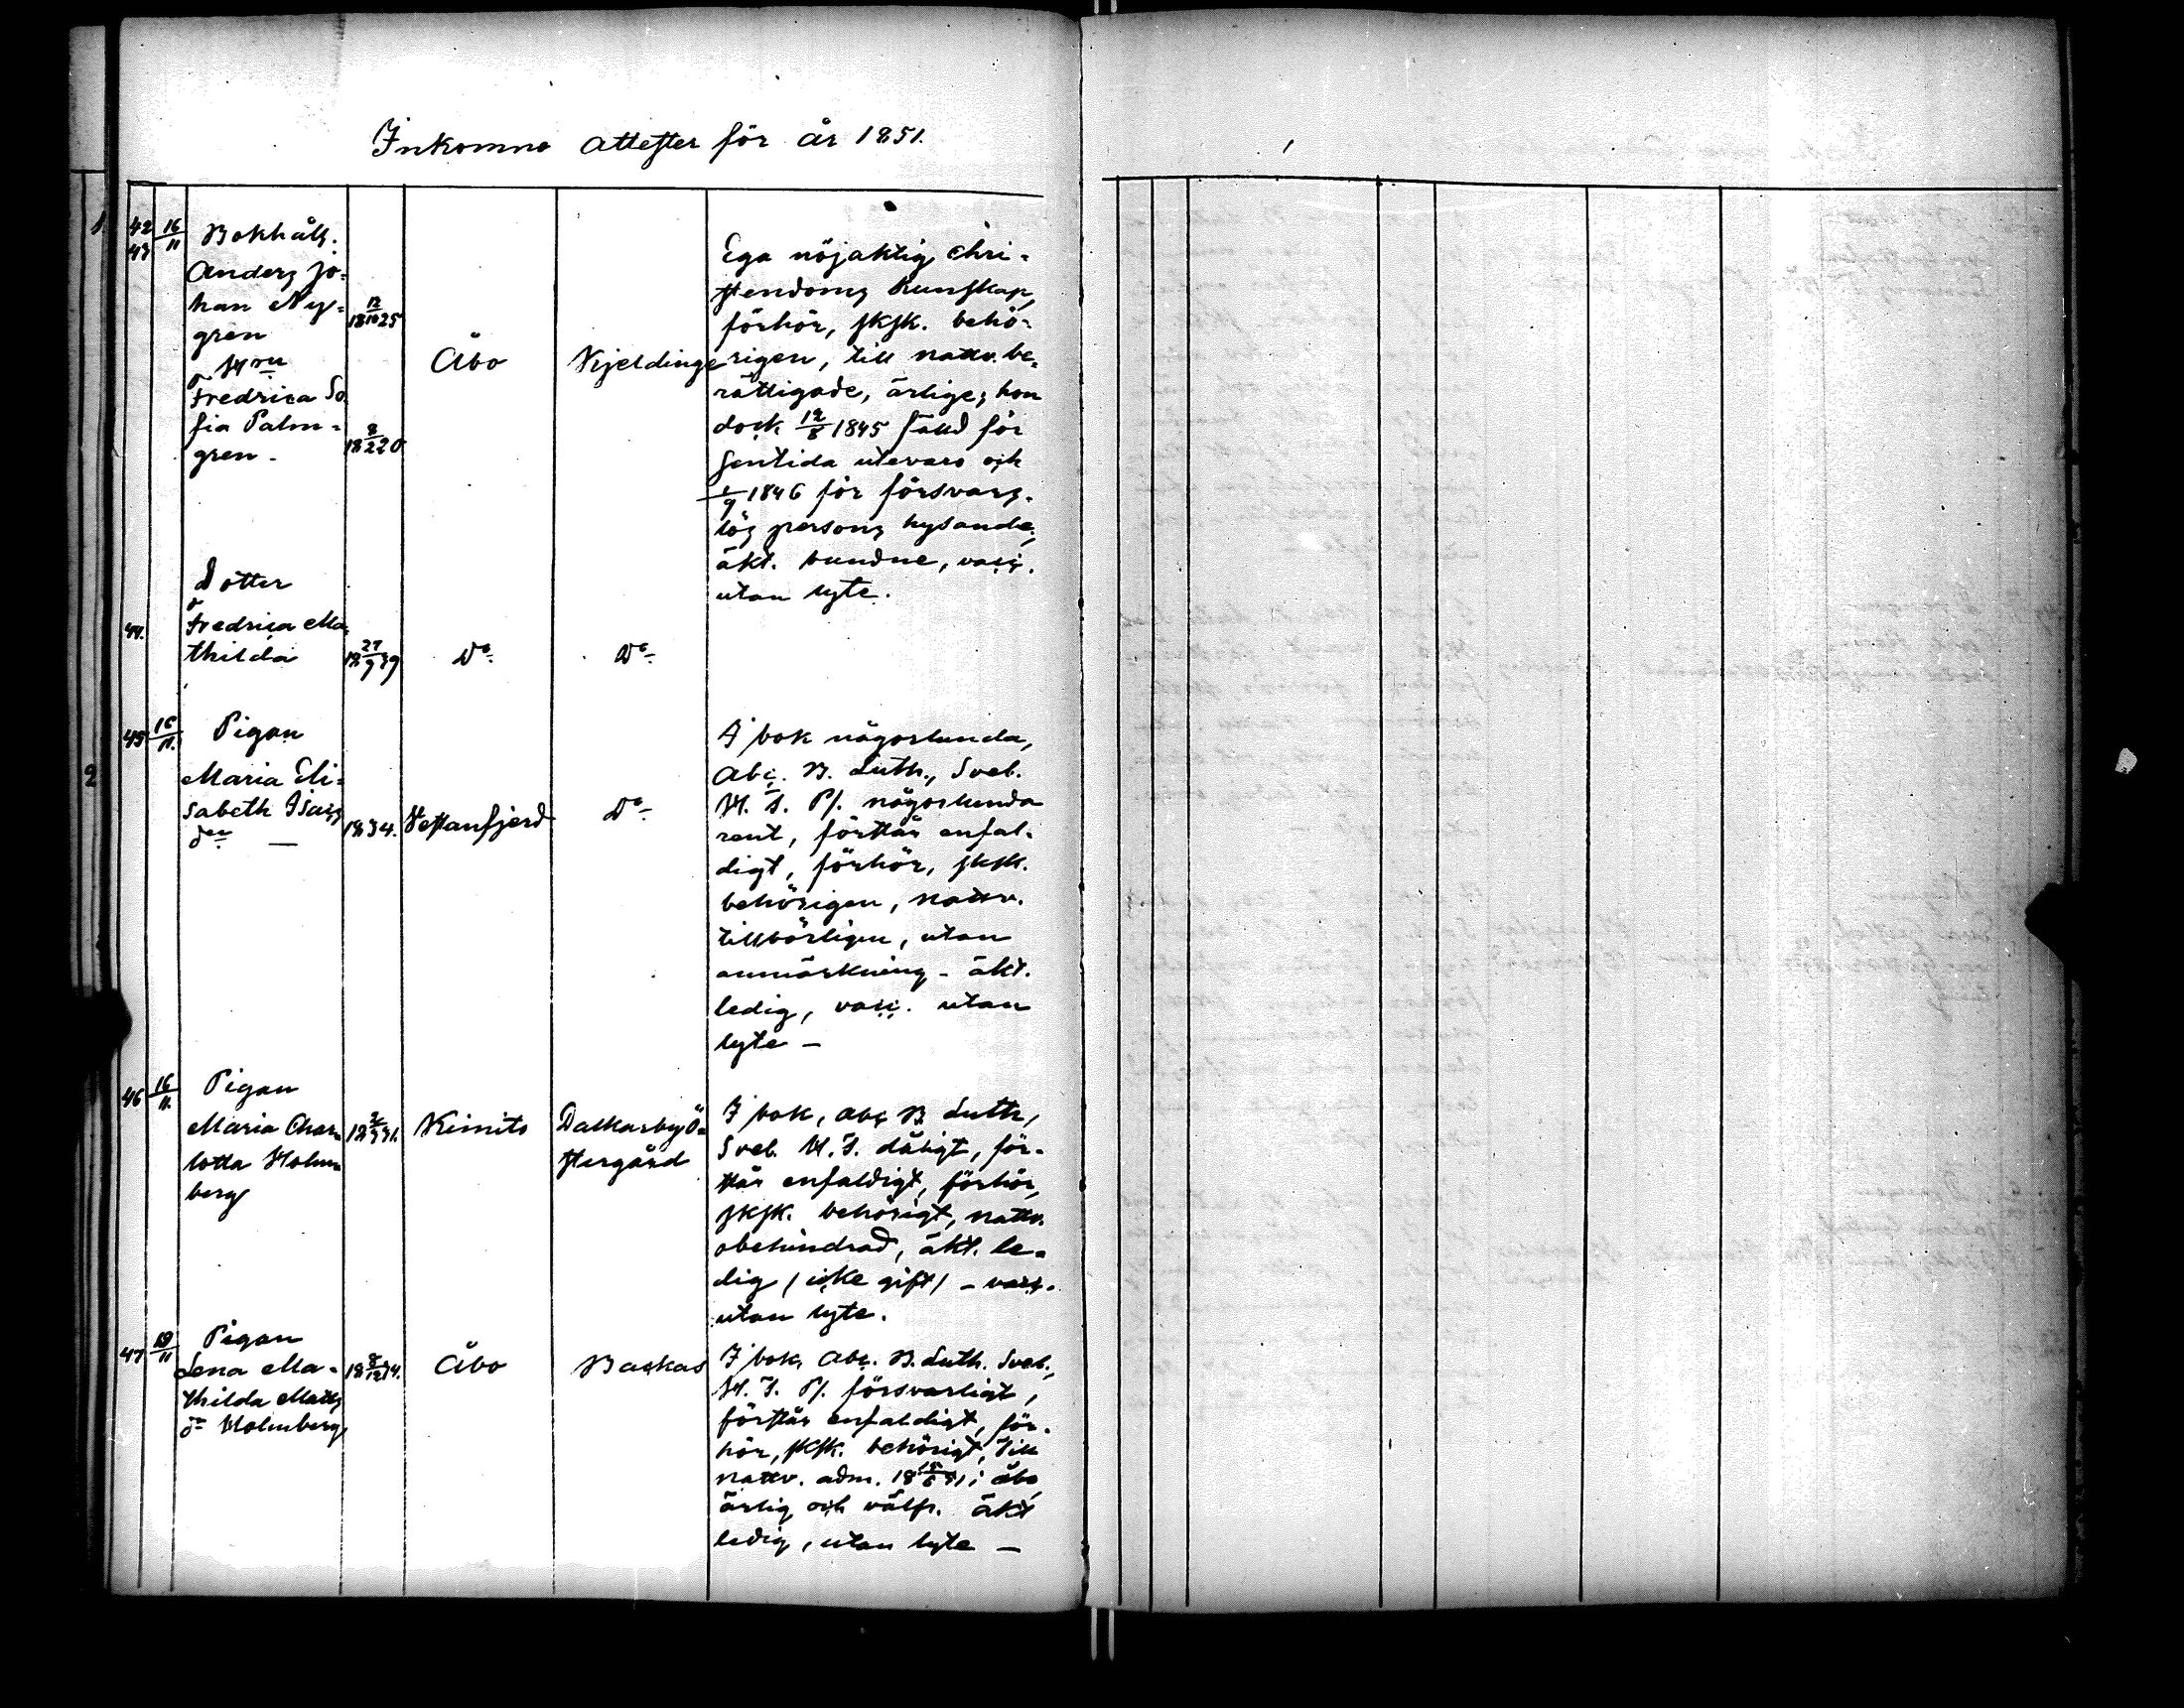 Inkomne attester för år 1851.
1 42 43 16/11 Bokhåll.
Anders Jo-
han Ny- 18 12/10 25
gren
o Hru Åbo Kjeldinge
Fredrica So
fia Palm-
gren. 18 8/2 20
Ega nöjaktig Chri-
stendoms kunskap,
förhör, sksk. behö-
rigen, till nattv. be-
rättigade, ärlige; hon
dock 12/8 1845 fälld för
sentida utevaro och
1/9 1846 för försvars-
lös persons hysande,
äkt. bundne, vacc.
utan lyte.
Dotter
44. Fredrica Ma-
thilda 18 27/9 49 Do Do
45 16/11. Pigan
2 Maria Eli-
sabeth Isacs
dr — 1834. Vestanfjerd Do
I bok någorlunda,
Abc. B. Luth., Sveb.
H. T. Ps. någorlunda
rent, förstår enfal-
digt, förhör, sksk.
behörigen, nattv.
tillbörligen, utan
anmärkning - äkt.
ledig, vacc. utan
lyte —
46 16/11. Pigan
Maria Char- Kimito Dalkarby Ö-
lotta Holm- stergård
berg
I bok, Abc B. Luth,
Sveb. H. T. dåligt, för-
står enfaldigt, förhör,
sksk. behörigt, nattv.
obehindrad, äkt. le-
dig (icke gift) - vacc.
utan lyte.
47 19/11 Pigan
Lena Ma- Åbo Backas
thilda Matts
dr Holmberg
I bok, Abc. B. Luth. Sveb.,
H. T. Ps. försvarligt,
förstår enfaldigt, för-
hör, sksk. behörigt, till
nattv. adm. i Åbo,
ärlig och välfr. äkt
ledig, utan lyte —